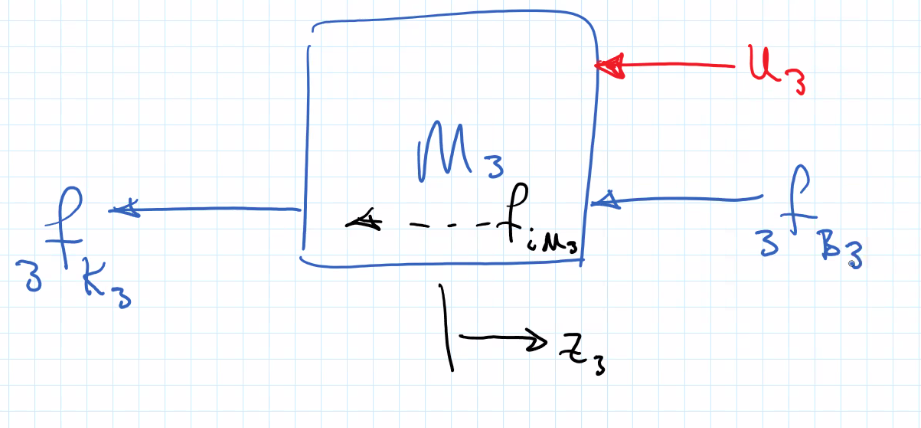 u₃
M₃
₃f_K₃
f_iM₃
₃f_B₃
z₃